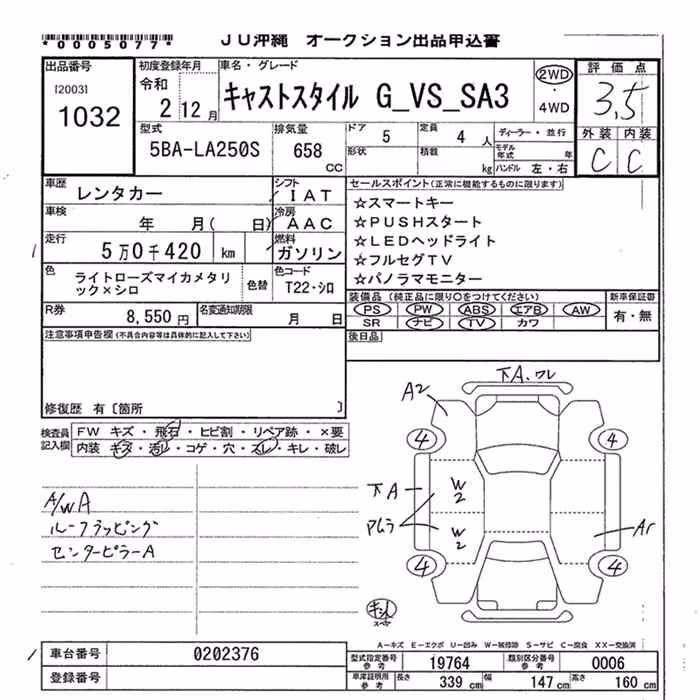 *0005077*
JU沖縄 オークション出品申込書
出品番号
[2003]
1032
初度登録年月
令和
2 12月
車名・グレード
キャストスタイル G_VS_SA3
2WD
・
4WD
評価点
3.5
外装 内装
C C
型式
5BA-LA250S
排気量
658
CC
ドア 5
定員 4 人
形状
積載 kg
ディーラー・並行
モデル年式 年
ハンドル 左・右
車歴
レンタカー
シフト
IAT
車検
年 月( 日)
冷房
AAC
走行
5万0千420 km
燃料
ガソリン
色
ライトローズマイカメタリック×シロ
色替
色コード
T22-シロ
R券
8,550円
名変通知期限
月 日
セールスポイント(正常に機能するものに限ります)
☆スマートキー
☆PUSHスタート
☆LEDヘッドライト
☆フルセグTV
☆パノラマモニター
装備品 (純正品に限り○をつけてください)
PS PW ABS エアB AW
SR ナビ TV カワ
新車保証書
有・無
後日品
注意事項申告欄(不具合内容等は具体的に記入して下さい)
修復歴 有〔箇所 〕
検査員
記入欄
FW キズ・飛石・ヒビ割・リペア跡・×要
内装・キズ・汚レ・コゲ・穴・スレ・キレ・破レ
A/WA
ルーフラッピング
センターピラーA
下A.ワレ
A2
4
4
下A
W2
W2
Ar
4
4
スペヤ
A-キズ E-エクボ U-凹み W-補修跡 S-サビ C-腐食 XX-交換済
車台番号
0202376
登録番号
型式指定番号
参考
19764
類別区分番号
参考
0006
車庫証明用
参考
長さ 339 cm
幅 147 cm
高さ 160 cm